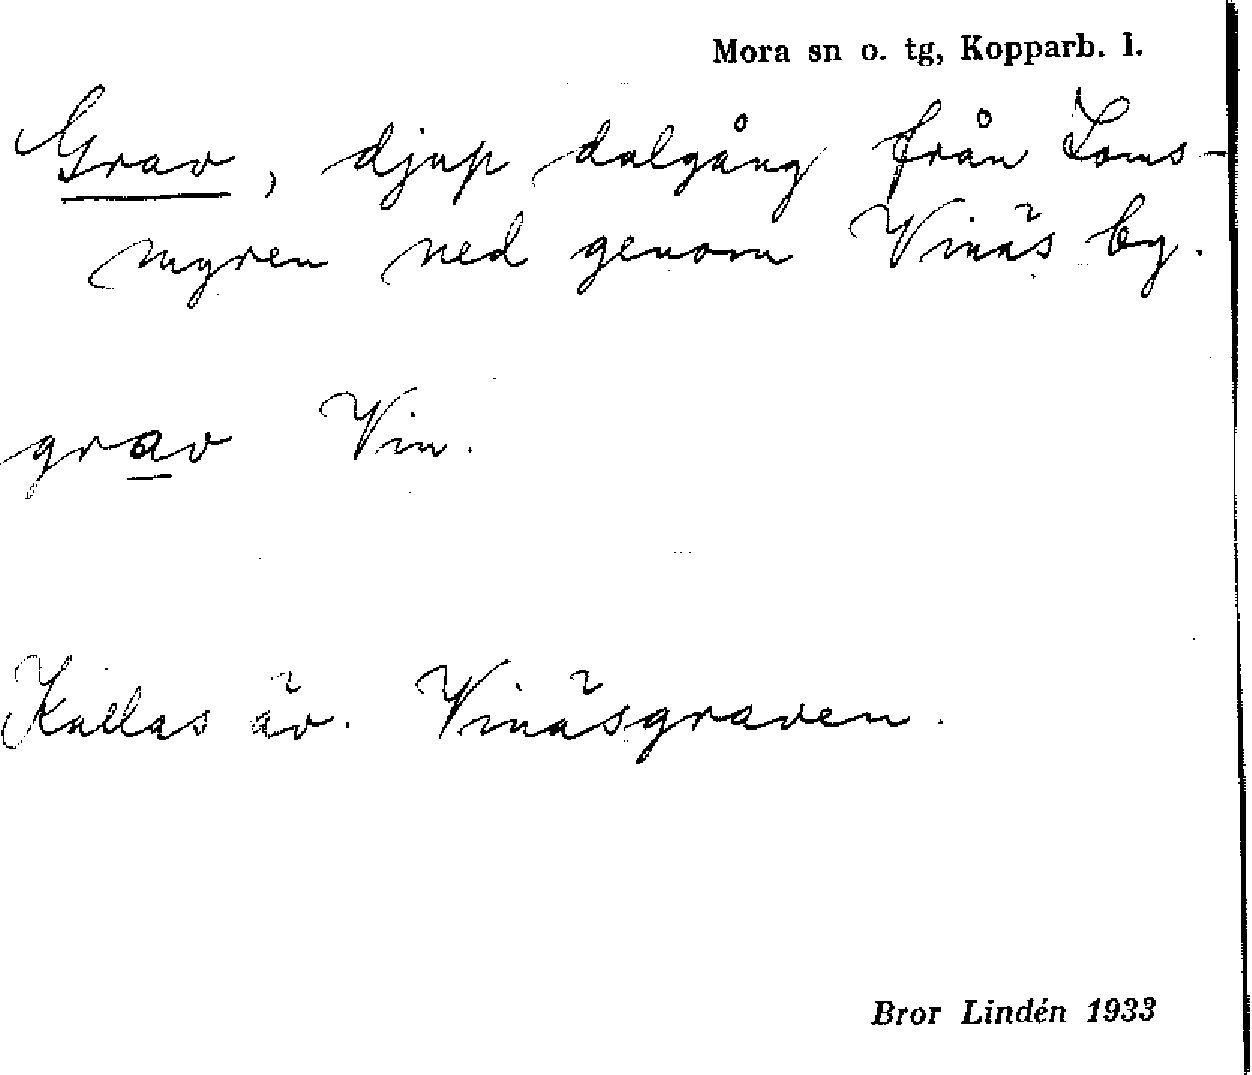 Mora sn o. tg, Kopparb. l.
Grav, djup dalgång från Loms-
myren ned genom Vinäs by.
grav Vin.
Kallas äv. Vinäsgraven.
Bror Lindén 1933